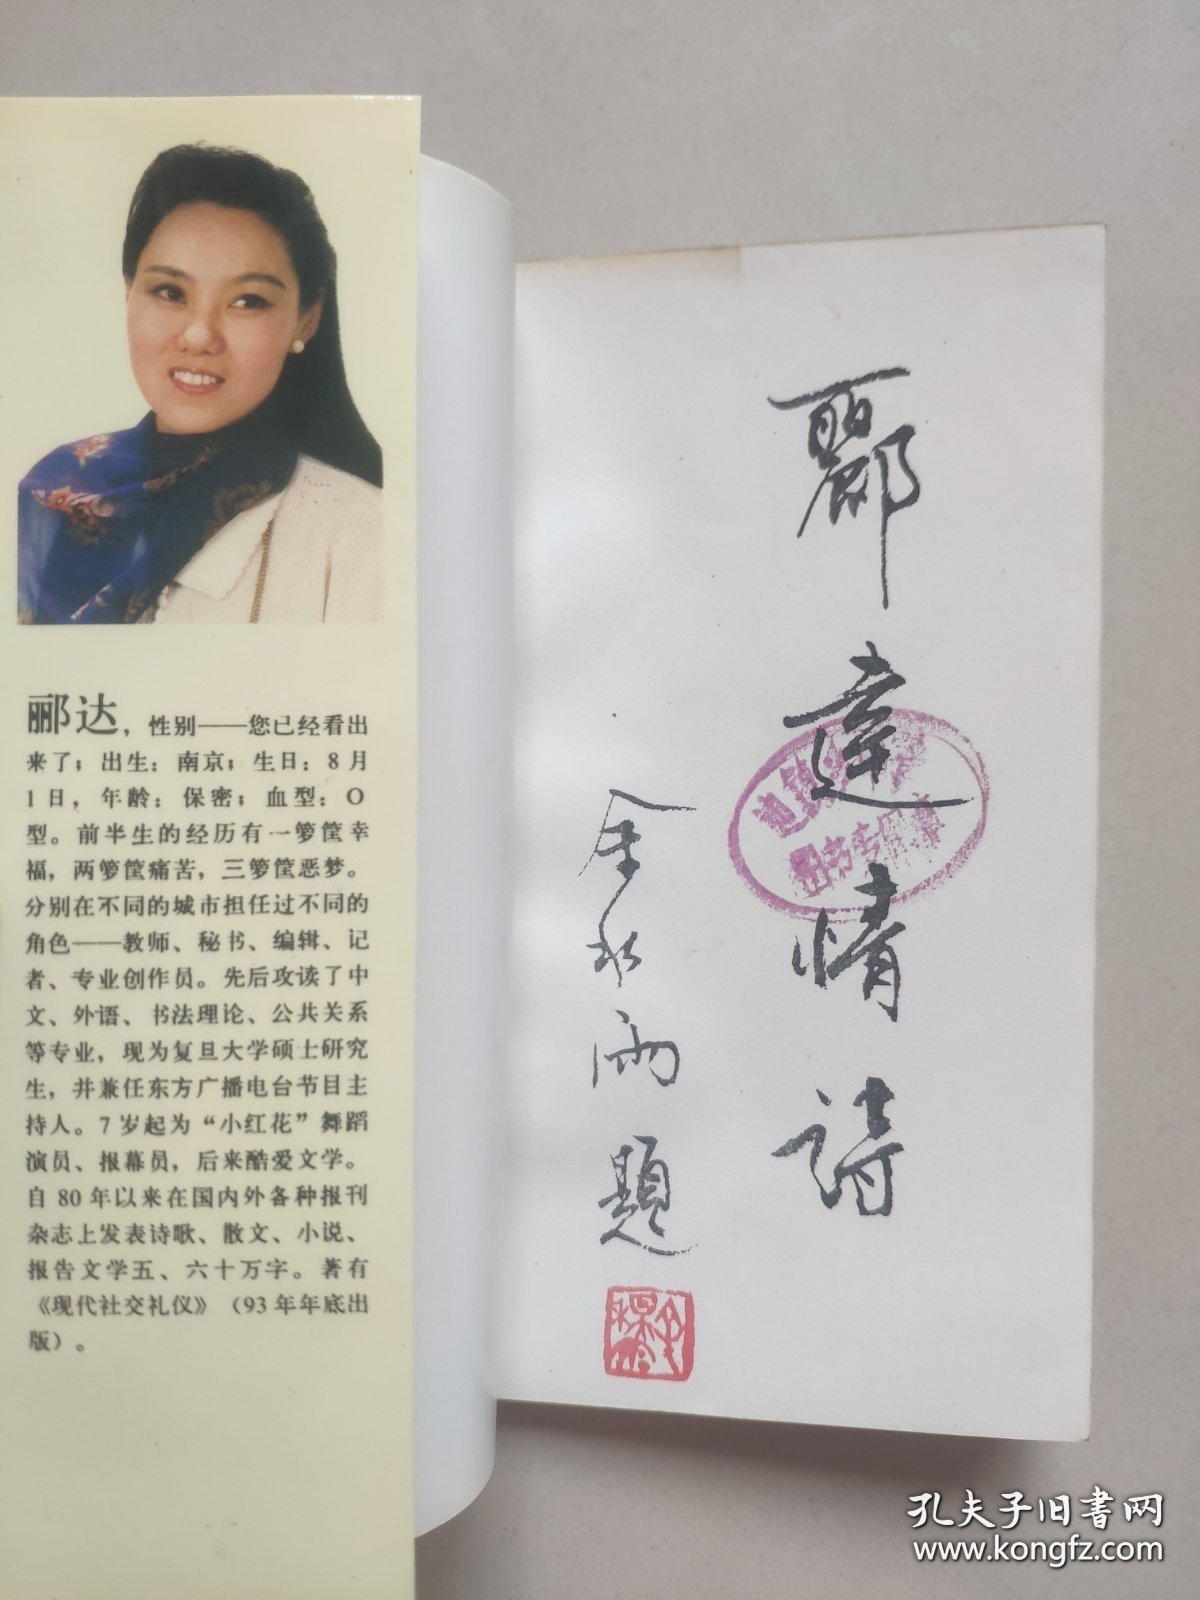 郦达，性别——您已经看出
来了；出生：南京；生日：8月
1日，年龄：保密；血型：O
型。前半生的经历有一箩筐幸
福，两箩筐痛苦，三箩筐恶梦。
分别在不同的城市担任过不同的
角色——教师、秘书、编辑、记
者、专业创作员。先后攻读了中
文、外语、书法理论、公共关系
等专业，现为复旦大学硕士研究
生，并兼任东方广播电台节目主
持人。7岁起为“小红花”舞蹈
演员、报幕员，后来酷爱文学。
自80年以来在国内外各种报刊
杂志上发表诗歌、散文、小说、
报告文学五、六十万字。著有
《现代社交礼仪》（93年年底出
版）。
酈達情詩
余秋雨題
图书专用章
孔夫子旧书网
www.kongfz.com